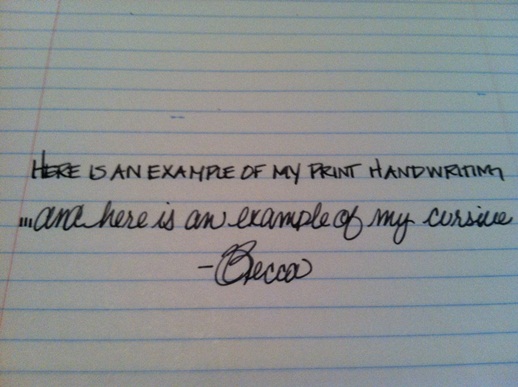 HERE IS AN EXAMPLE OF MY PRINT HANDWRITING
...and here is an example of my cursive
-Becca